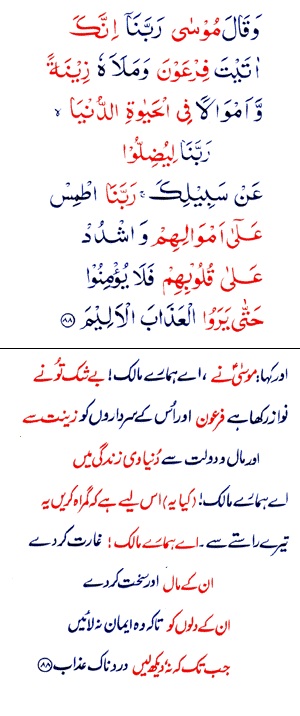 وَقَالَ مُوْسٰى رَبَّنَاۤ اِنَّكَ
اٰتَيْتَ فِرْعَوْنَ وَمَلَاَهٗ زِيْنَةً
وَّاَمْوَالًا فِى الْحَيٰوةِ الدُّنْيَا ۙ
رَبَّنَا لِيُضِلُّوْا
عَنْ سَبِيْلِكَ ۚ رَبَّنَا اطْمِسْ
عَلٰٓى اَمْوَالِهِمْ وَ اشْدُدْ
عَلٰى قُلُوْبِهِمْ فَلَا يُؤْمِنُوْا
حَتّٰى يَرَوُا الْعَذَابَ الْاَلِيْمَ ﴿۸۸﴾
اور کہا: موسیٰؑ نے ، اے ہمارے مالک! بے شک تُو نے
نواز رکھا ہے فرعون اور اُس کے سرداروں کو زینت سے
اور مال و دولت سے دُنیاوی زندگی میں
اے ہمارے مالک! (کیا یہ) اس لیے ہے کہ گمراہ کریں یہ
تیرے راستے سے ۔ اے ہمارے مالک ! غارت کر دے
ان کے مال اور سخت کر دے
ان کے دلوں کو تاکہ وہ ایمان نہ لائیں
جب تک کہ نہ دیکھ لیں درد ناک عذاب ﴿۸۸﴾